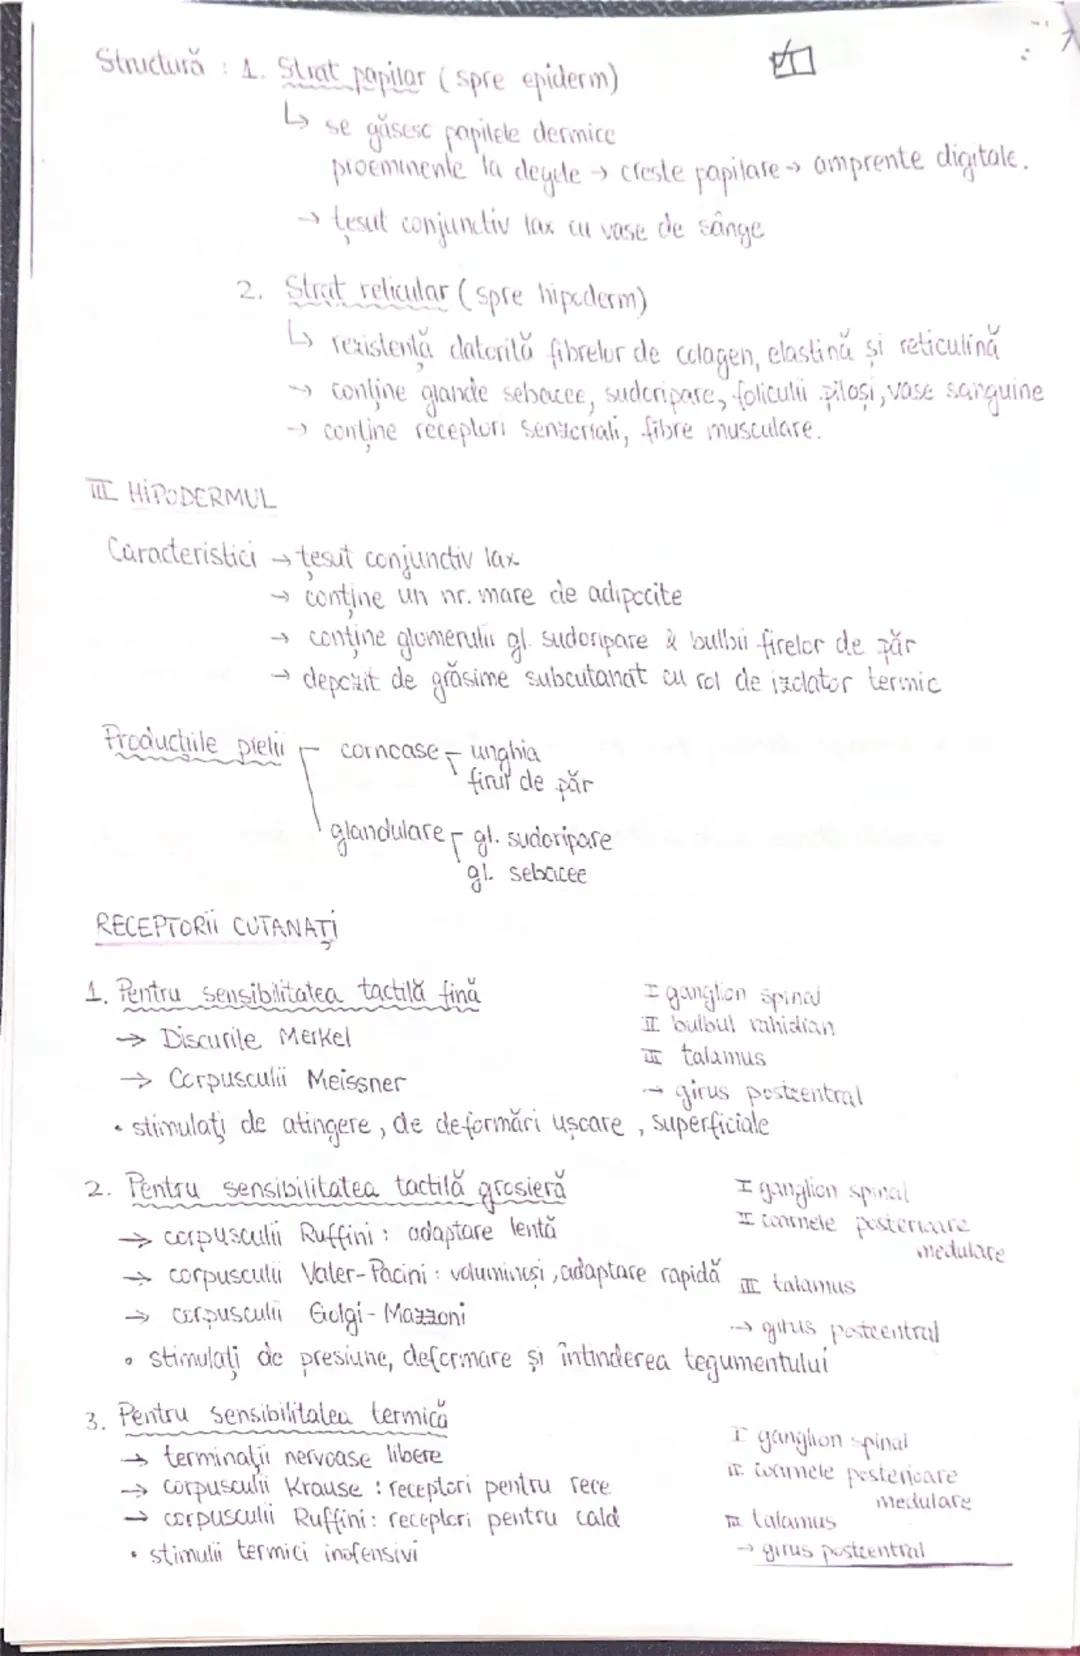 Structură : 1. Strat papilar (spre epiderm)
↳ se găsesc papilele dermice
proeminente la degete → creste papilare → amprente digitale.
→ țesut conjunctiv lax cu vase de sânge
2. Strat reticular (spre hipoderm)
↳ rezistență datorită fibrelor de colagen, elastină și reticulină
→ conține glande sebacee, sudoripare, foliculii piloși, vase sanguine
→ conține receptori senzoriali, fibre musculare.
III HIPODERMUL
Caracteristici → țesut conjunctiv lax
→ conține un nr. mare de adipocite
→ conține glomerulii gl. sudoripare & bulbii firelor de păr
→ depozit de grăsime subcutanat cu rol de izolator termic
Producțiile pielii
cornoase - unghia
firul de păr
glandulare - gl. sudoripare
gl. sebacee
RECEPTORII CUTANAȚI
1. Pentru sensibilitatea tactilă fină
I ganglion spinal
→ Discurile Merkel
II bulbul rahidian
III talamus
→ Corpusculii Meissner
→ girus postcentral
• stimulați de atingere, de deformări ușoare, superficiale
2. Pentru sensibilitatea tactilă grosieră
I ganglion spinal
→ corpusculii Ruffini : adaptare lentă
II coarnele posterioare
medulare
→ corpusculii Vater-Pacini : voluminoși, adaptare rapidă
III talamus
→ corpusculii Golgi-Mazzoni
→ girus postcentral
• stimulați de presiune, deformare și întinderea tegumentului
3. Pentru sensibilitatea termică
I ganglion spinal
→ terminații nervoase libere
II coarnele posterioare
→ corpusculii Krause : receptori pentru rece
medulare
→ corpusculii Ruffini : receptori pentru cald
III talamus
• stimulii termici inofensivi
→ girus postcentral